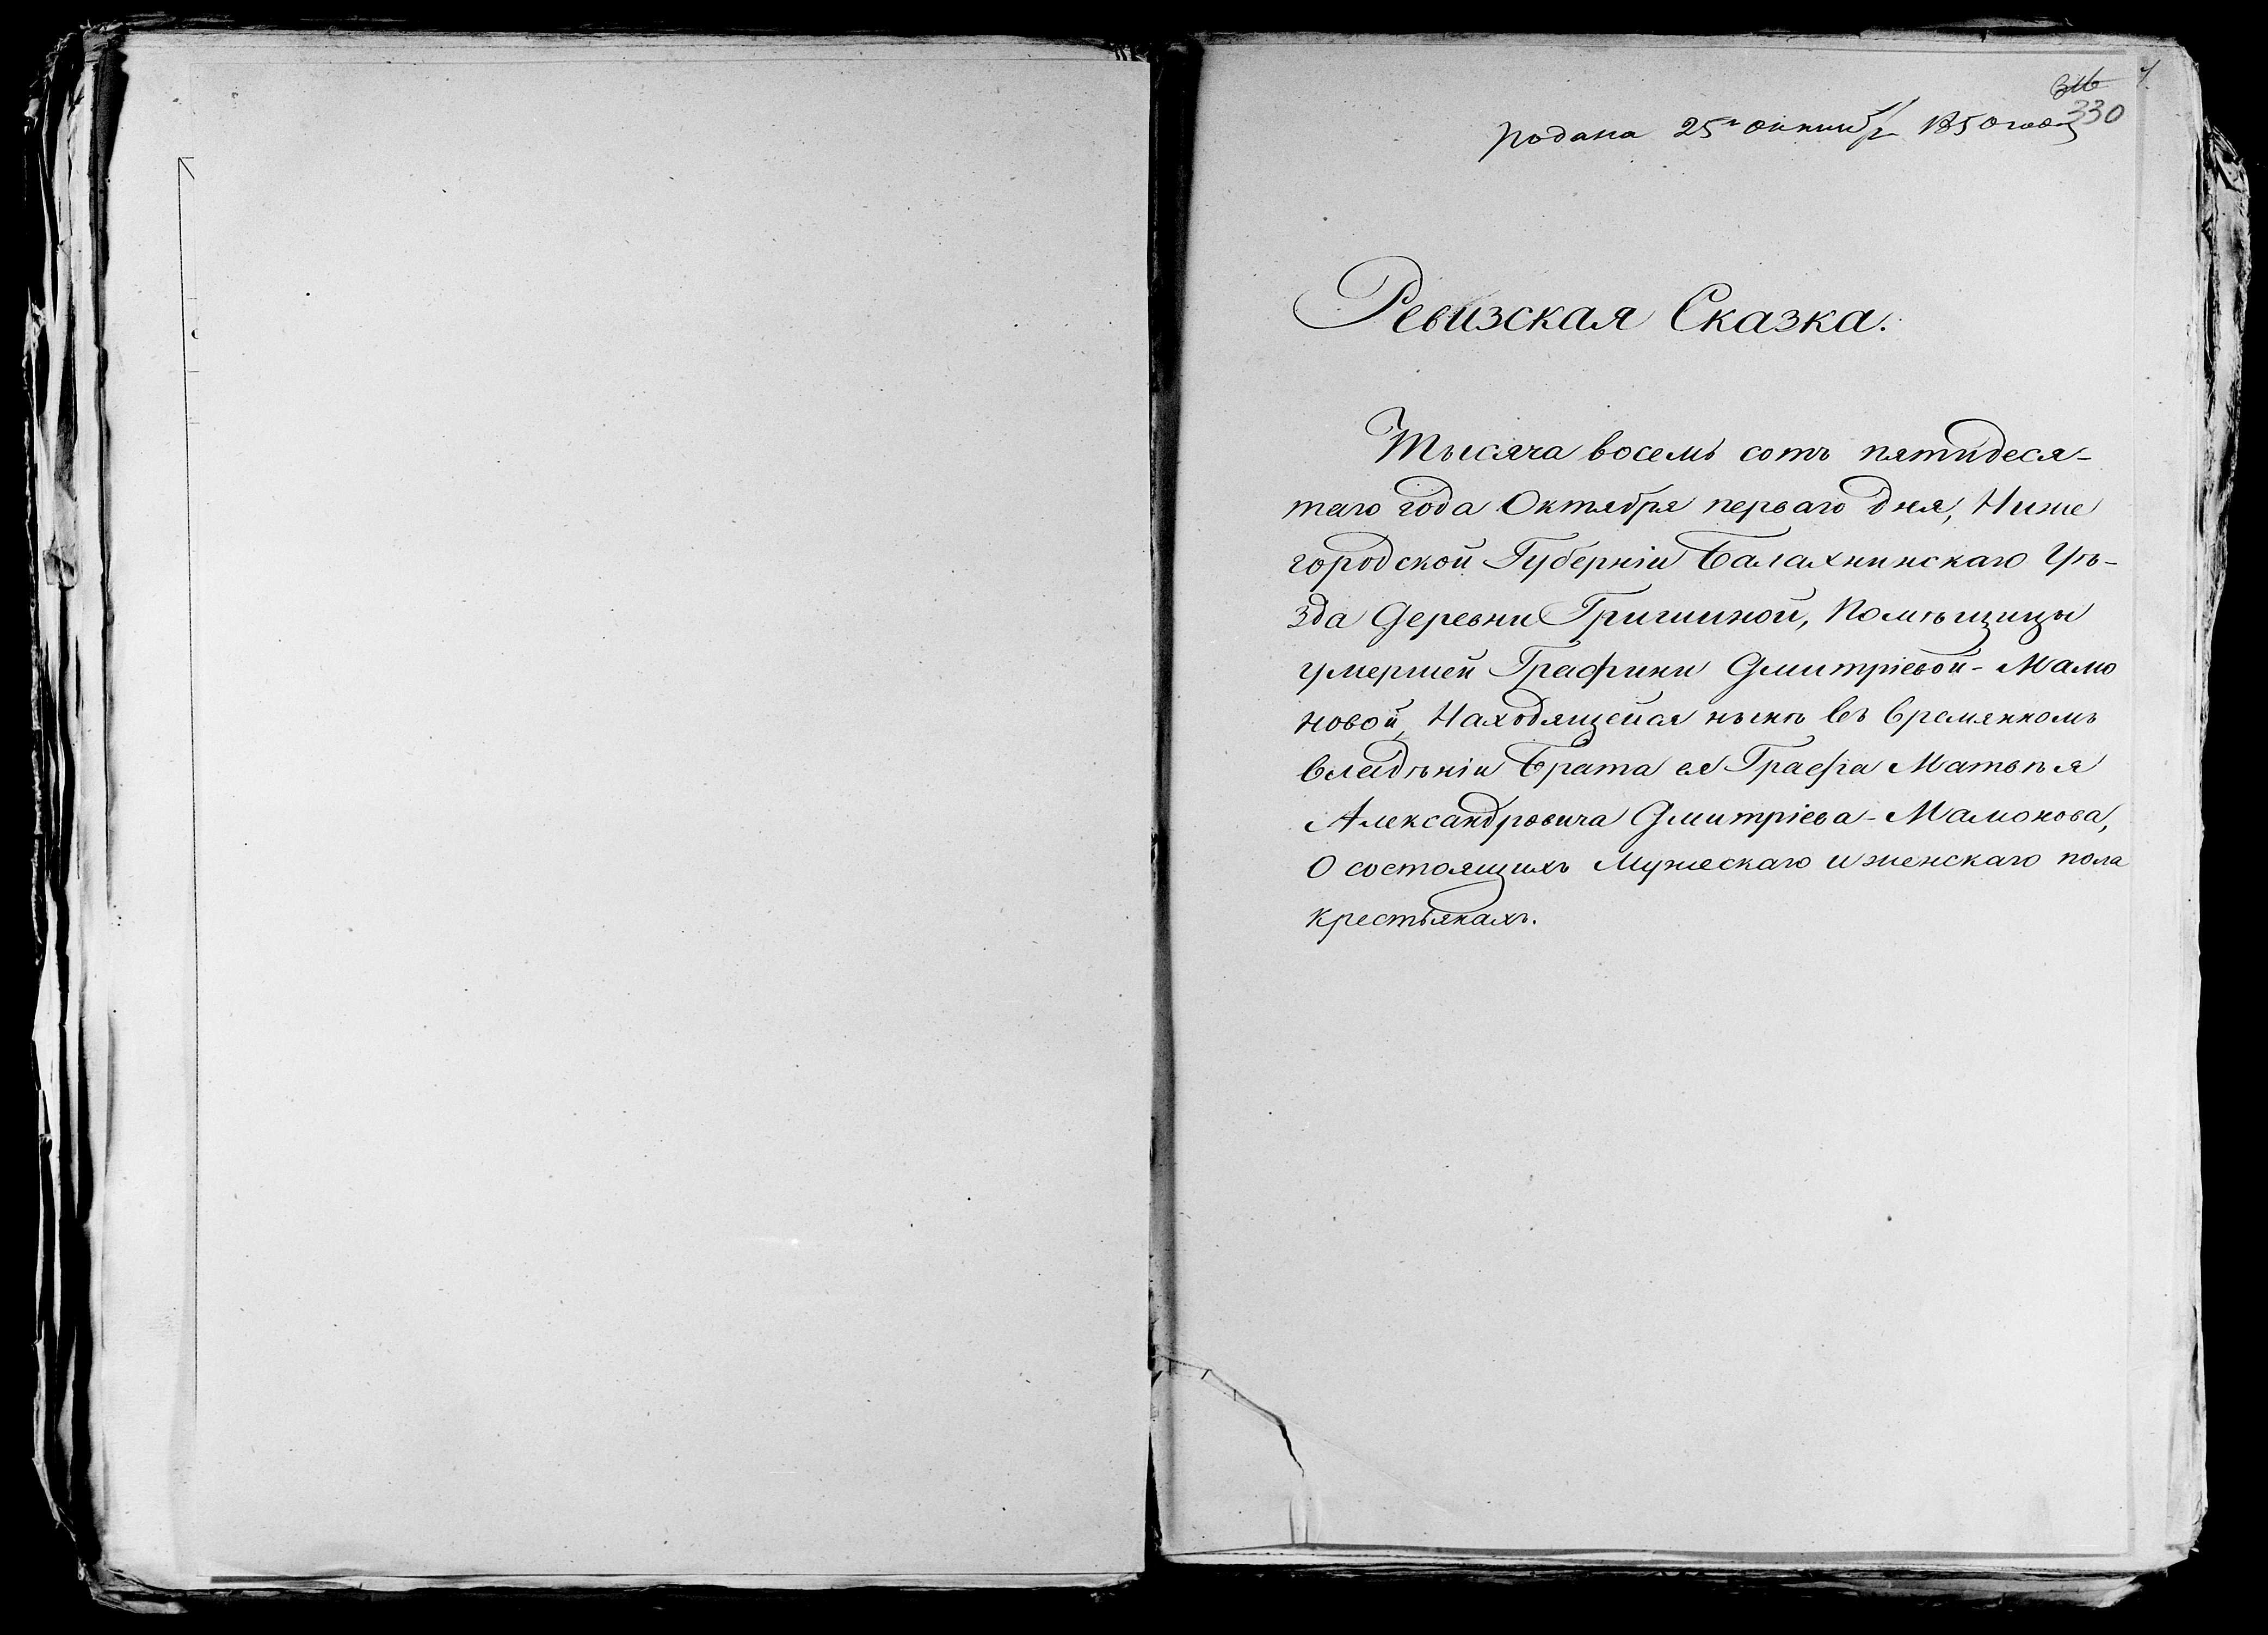 330
подана 25го октября 1850 года
Ревизская Сказка.
Тысяча восемь сотъ пятидеся-
таго года Октября перваго дня, Ниже
городской Губерніи Балахнинскаго Уѣ-
зда Деревни Гришиной, Помѣщицы
умершей Графини Дмитріевой-Мамо
новой, Находящейся нынѣ въ времянномъ
владѣніи Брата ея Графа Матвѣя
Александровича Дмитріева-Мамонова,
О состоящихъ Мужескаго и женскаго пола
крестьянахъ.